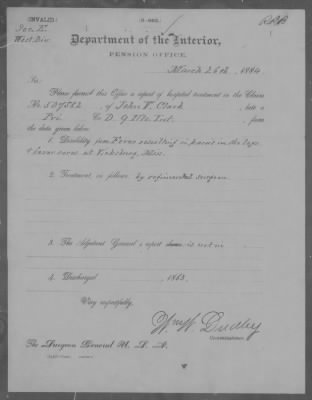 INVALID: (3-060.) RRB
Sec. E.
West. Div. Department of the Interior,
PENSION OFFICE,
March 26th, 1884
Sir:
Please furnish this Office a report of hospital treatment in the Claim
No. 507562, of John F. Clark, late a
Pri. Co. D, 9 Inf., from
the data given below:
1. Disability from Fever resulting in in the legs
& fever sores at Vicksburg, Miss.
2. Treatment, as follows, by regimental surgeon
3. The Adjutant General's report shows is not in
4. Discharged 1863.
Very respectfully,
Wm W. Dudley
COMMISSIONER.
The Surgeon General U. S. A.